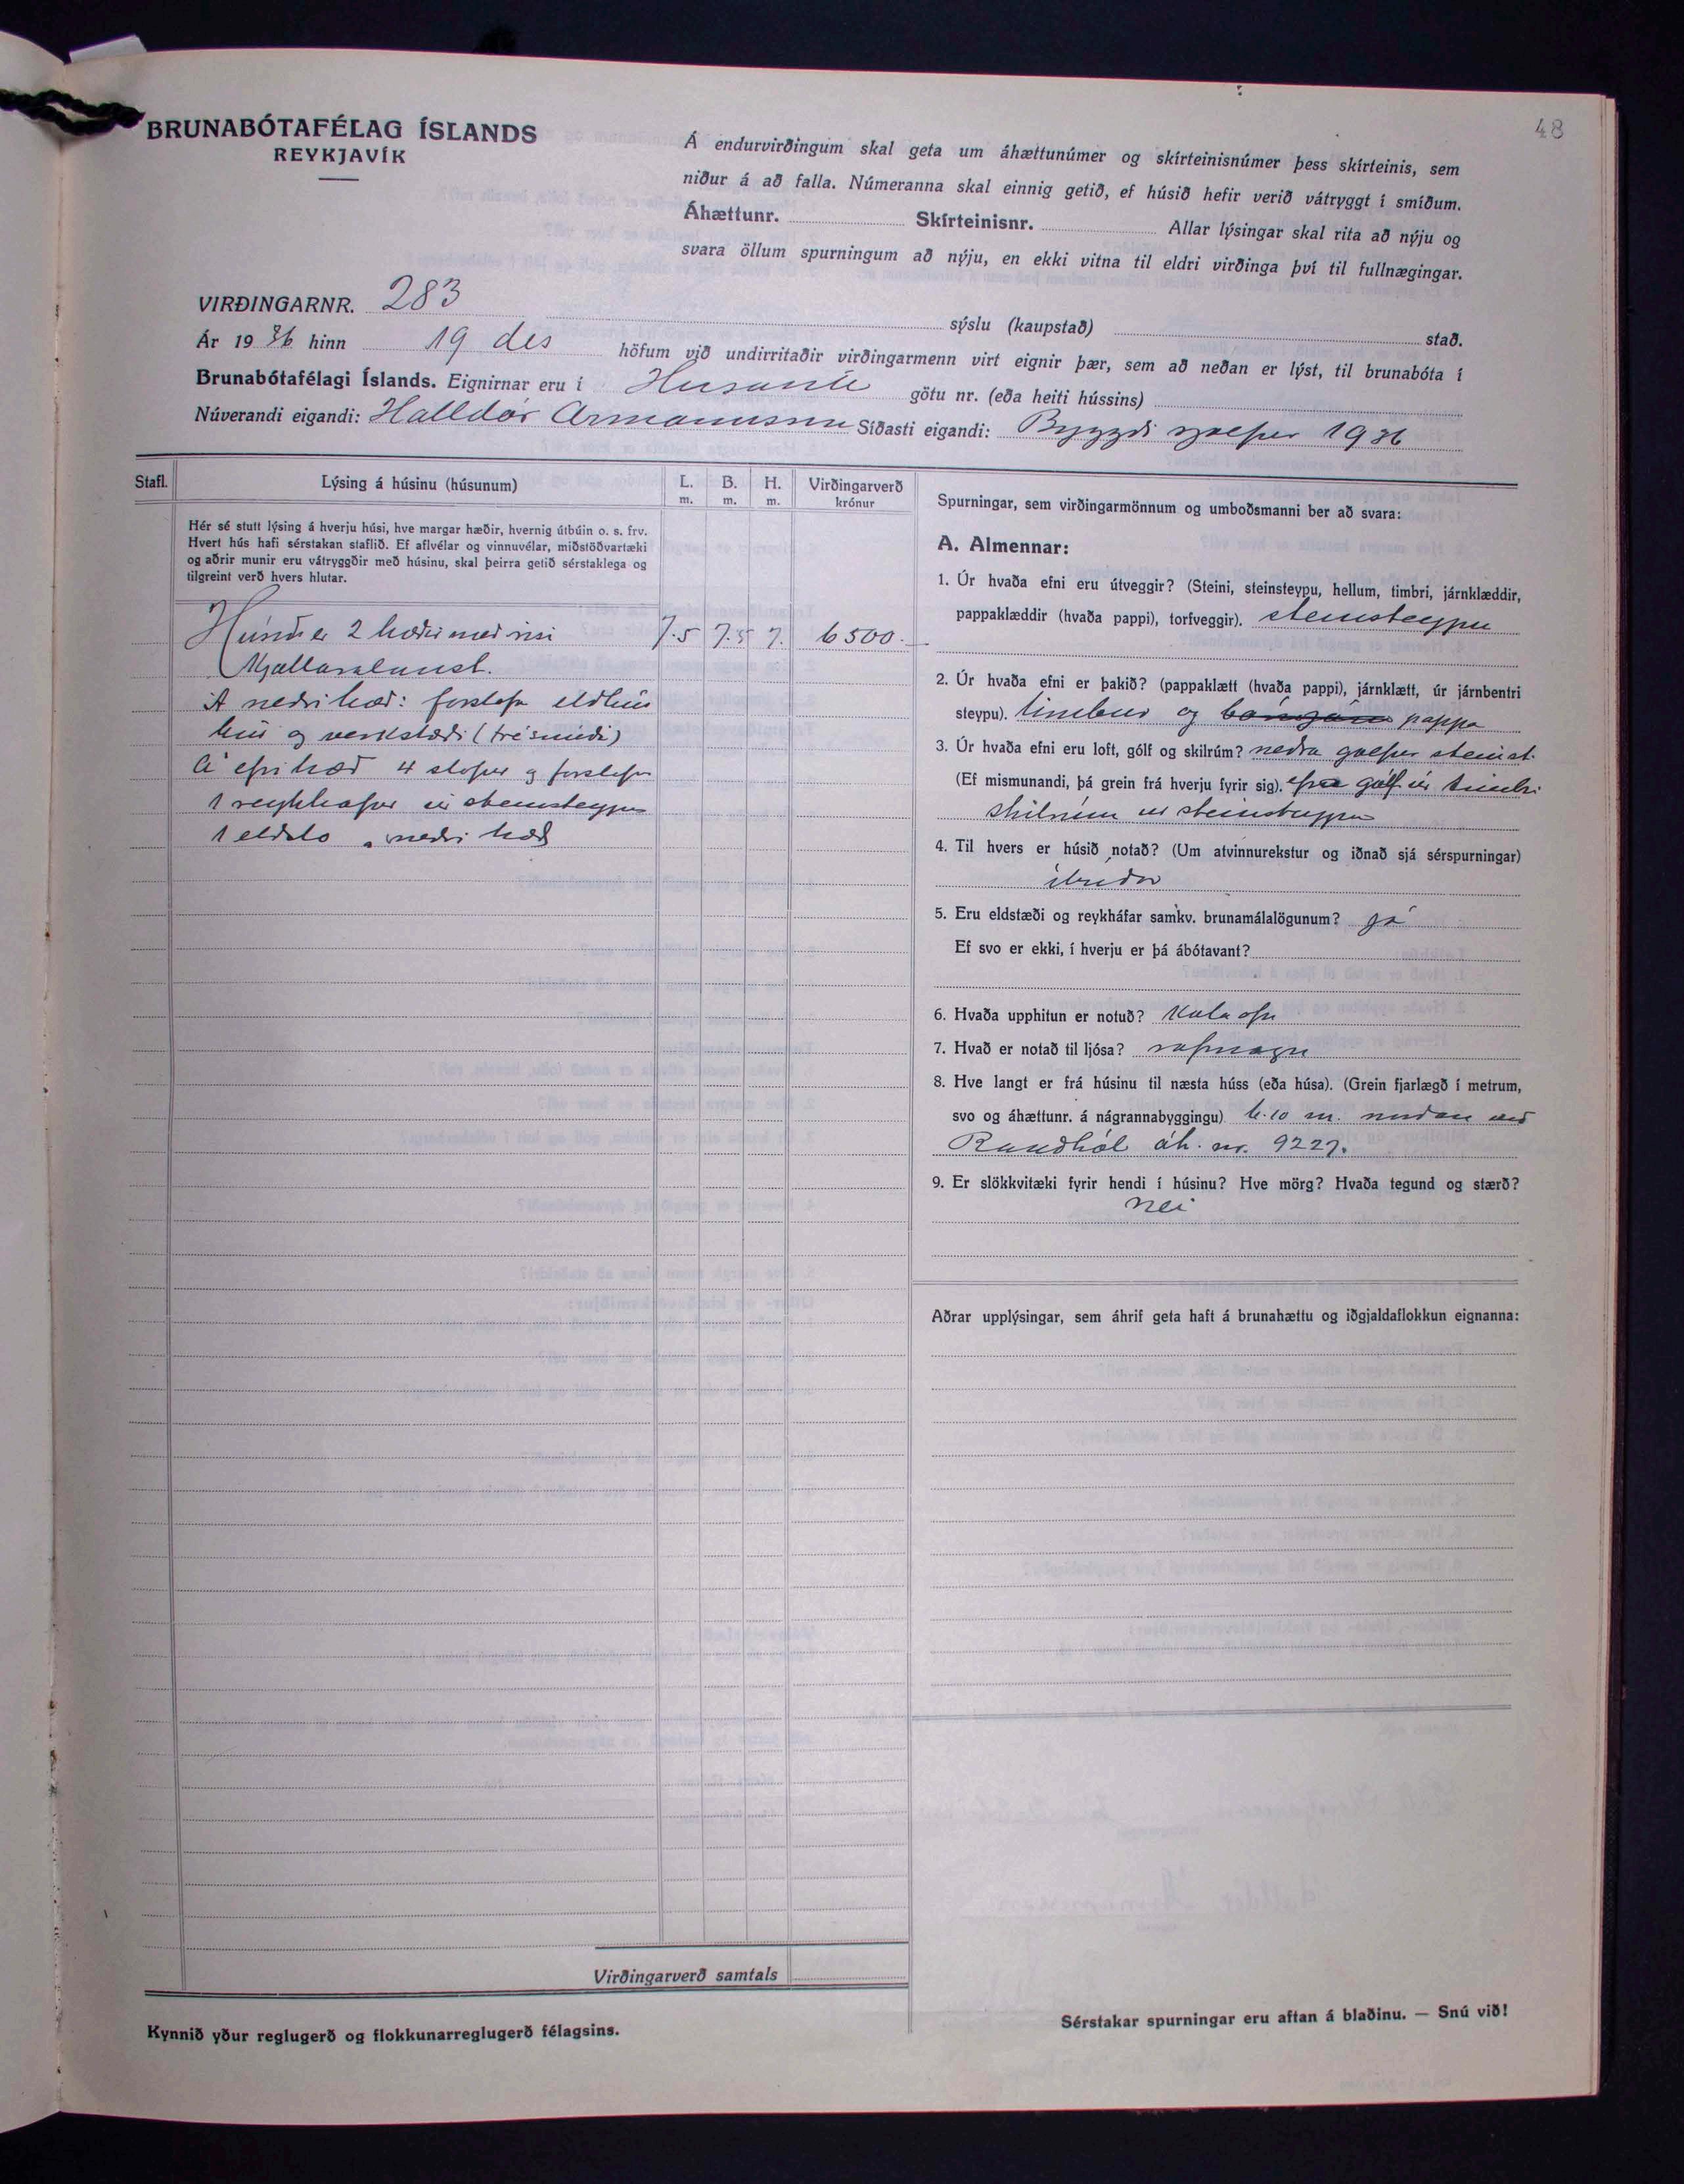 48
BRUNABÓTAFÉLAG ÍSLANDS
REYKJAVÍK
Á endurvirðingum skal geta um áhættunúmer og skírteinisnúmer þess skírteinis, sem
niður á að falla. Númeranna skal einnig getið, ef húsið hefir verið vátryggt í smíðum.
Áhættunr. Skírteinisnr. Allar lýsingar skal rita að nýju og
svara öllum spurningum að nýju, en ekki vitna til eldri virðinga því til fullnægingar.
VIRÐINGARNR. 283 sýslu (kaupstað) stað.
Ár 1936 hinn 19 des höfum við undirritaðir virðingarmenn virt eignir þær, sem að neðan er lýst, til brunabóta í
Brunabótafélagi Íslands. Eignirnar eru í götu nr. (eða heiti hússins)
Núverandi eigandi: Halldór Armannsson Síðasti eigandi: Byggði sjálfur 1936
Stafl. Lýsing á húsinu (húsunum) L. m. B. m. H. m. Virðingarverð krónur
Hér sé stutt lýsing á hverju húsi, hve margar hæðir, hvernig útbúin o. s. frv.
Hvert hús hafi sérstakan staflið. Ef aflvélar og vinnuvélar, miðstöðvartæki
og aðrir munir eru vátryggðir með húsinu, skal þeirra getið sérstaklega og
tilgreint verð hvers hlutar.
Húsið er 2 hæðir með risi 7.5 7.5 7. 6500.-
Kjallaralaust.
Á neðri hæð: forstofa eldhús
hús og verkstæði (trésmíði)
Á efri hæð 4 stofur og forstofa
1 reykháfur úr steinsteypu
1 eldsto á neðri hæð
Virðingarverð samtals
Kynnið yður reglugerð og flokkunarreglugerð félagsins.
Spurningar, sem virðingarmönnum og umboðsmanni ber að svara:
A. Almennar:
1. Úr hvaða efni eru útveggir? (Steini, steinsteypu, hellum, timbri, járnklæddir,
pappaklæddir (hvaða pappi), torfveggir). steinsteypu
2. Úr hvaða efni er þakið? (pappaklætt (hvaða pappi), járnklætt, úr járnbentri
steypu). timbur og bárujárn pappa
3. Úr hvaða efni eru loft, gólf og skilrúm? neðra gólfur steinst.
(Ef mismunandi, þá grein frá hverju fyrir sig). efra gólf úr timbri
skilrúm úr steinsteypu
4. Til hvers er húsið notað? (Um atvinnurekstur og iðnað sjá sérspurningar)
íbúðar
5. Eru eldstæði og reykháfar samkv. brunamálalögunum? já
Ef svo er ekki, í hverju er þá ábótavant?
6. Hvaða upphitun er notuð? Kola ofn
7. Hvað er notað til ljósa? rafmagn
8. Hve langt er frá húsinu til næsta húss (eða húsa). (Grein fjarlægð í metrum,
svo og áhættunr. á nágrannabyggingu) 6.10 m. norðan við
Rauðhól áh. nr. 9227.
9. Er slökkvitæki fyrir hendi í húsinu? Hve mörg? Hvaða tegund og stærð?
nei
Aðrar upplýsingar, sem áhrif geta haft á brunahættu og iðgjaldaflokkun eignanna:
Sérstakar spurningar eru aftan á blaðinu. — Snú við!